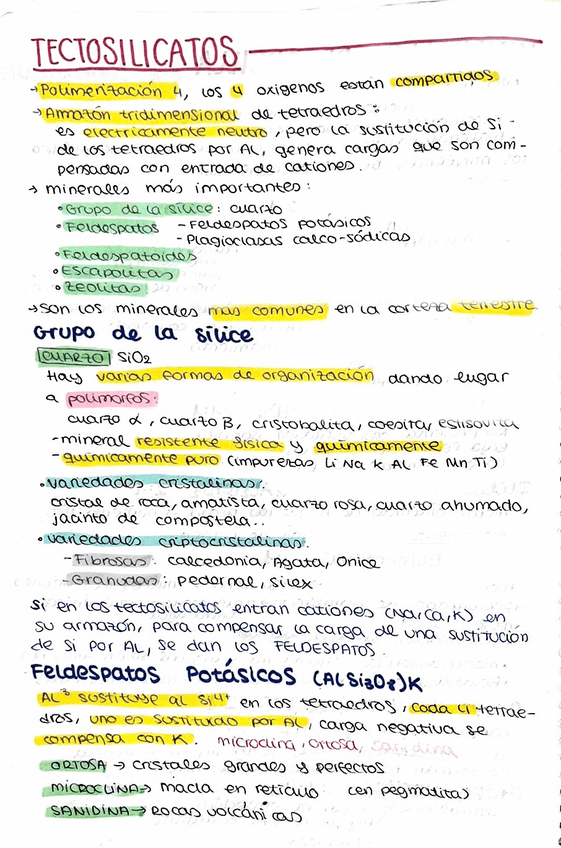 TECTOSILICATOS
→Polimerización 4, los 4 oxígenos están compartidos
→Armazón tridimensional de tetraedros:
es electricamente neutro, pero la sustitución de Si
de los tetraedros por AL, genera cargas que son com-
pensadas con entrada de cationes.
→ minerales más importantes:
•Grupo de la sílice: cuarzo
•Feldespatos - Feldespatos potásicos
- Plagioclasas calco-sódicas
•Feldespatoides
•Escapolitas
•zeolitas
→Son los minerales más comunes en la corteza terrestre
Grupo de la sílice
CUARZO SiO2
Hay varias formas de organización dando lugar
a polimorfos:
cuarzo α, cuarzo β, cristobalita, coesita, estisovita
-mineral resistente física y químicamente
-químicamente puro (impurezas Li Na K AL Fe Mn Ti)
•variedades cristalinas:
cristal de roca, amatista, cuarzo rosa, cuarzo ahumado,
jacinto de compostela..
•variedades criptocristalinas.
-Fibrosas: calcedonia, Agata, Onice
-Granudas: pedernal, silex
Si en los tectosilicatos entran cationes (Na, Ca, K) en
su armazón, para compensar la carga de una sustitución
de Si por AL, se dan los FELDESPATOS.
Feldespatos Potásicos (AlSi3O8)K
AL³ sustituye al Si⁴⁺ en los tetraedros, cada 4 tetrae-
dros, uno es sustituido por AL, carga negativa se
compensa con K. microclina, ortosa, sanidina
ORTOSA → cristales grandes y perfectos
MICROCLINA→ macla en retículo (en pegmatitas)
SANIDINA→ Rocas volcánicas